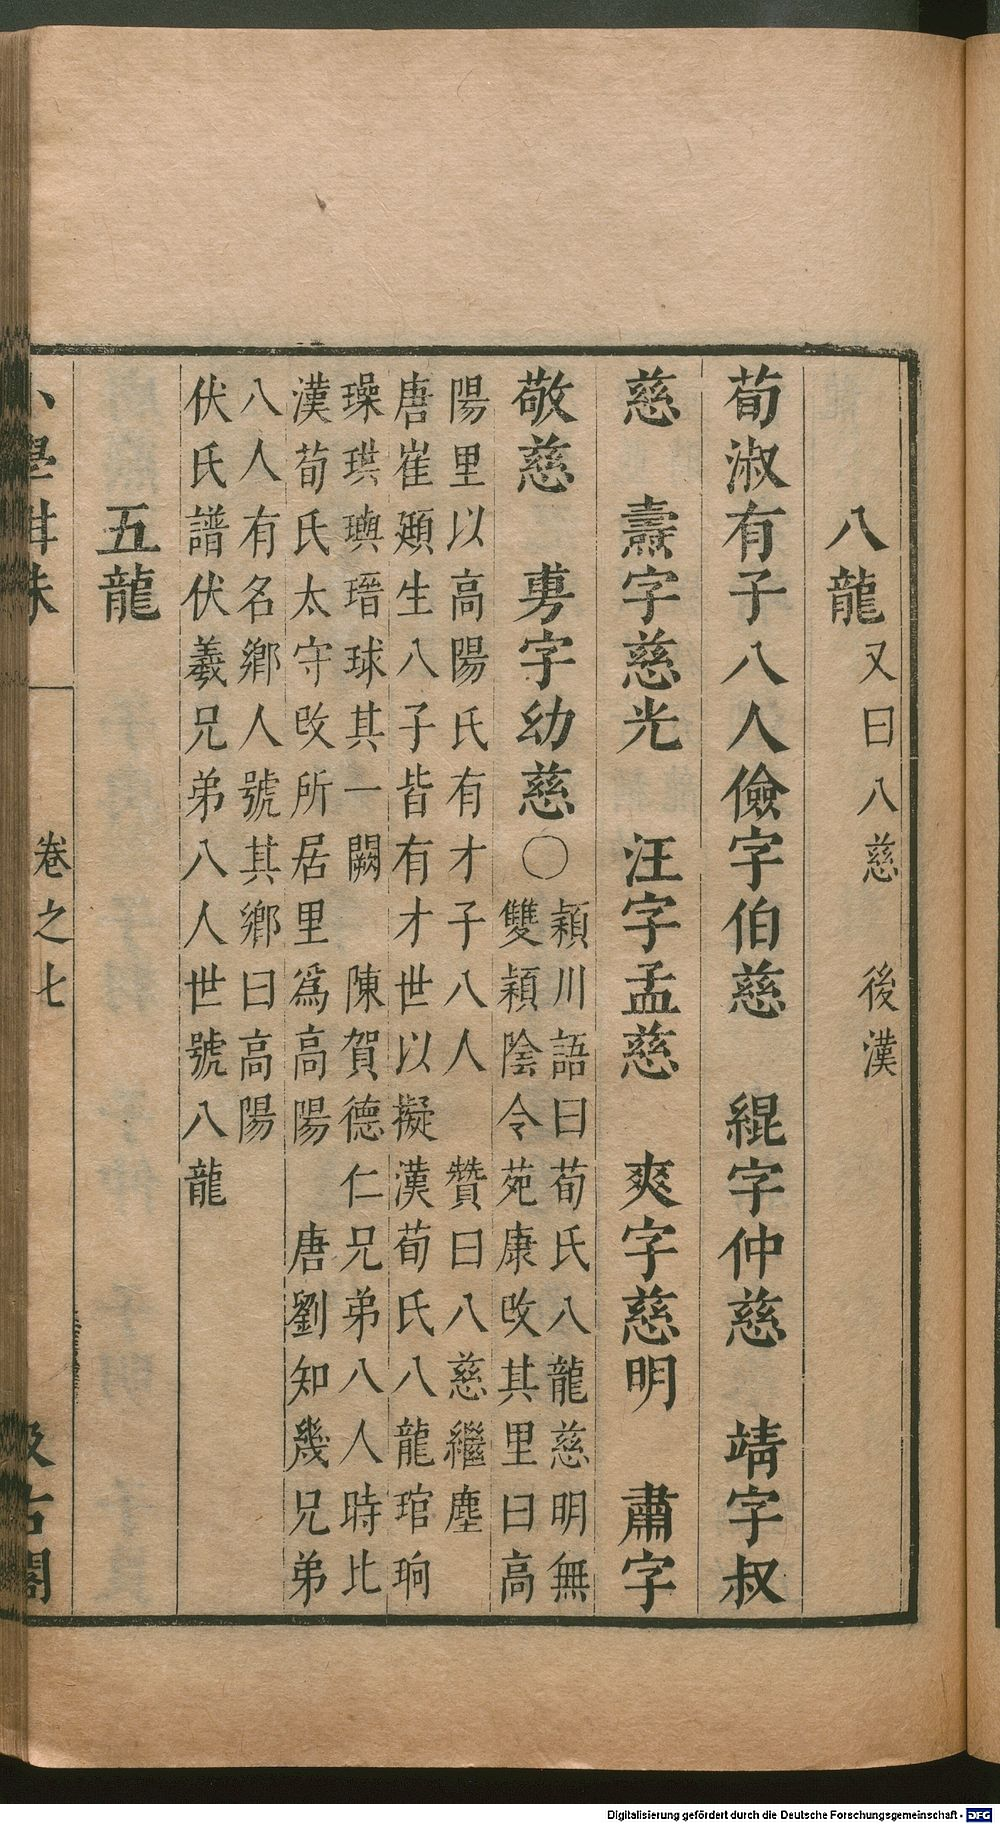 八龍又曰八慈　後漢
荀淑有子八人儉字伯慈　緄字仲慈　靖字叔
慈　燾字慈光　汪字孟慈　爽字慈明　肅字
敬慈　旉字幼慈〇
穎川語曰荀氏八龍慈明無
雙穎陰令苑康改其里曰高
陽里以高陽氏有才子八人　贊曰八慈繼塵
唐崔頲生八子皆有才世以擬漢荀氏八龍琯珦
璪珙璵瑨球其一闕　陳賀德仁兄弟八人時比
漢荀氏太守改所居里爲高陽　唐劉知幾兄弟
八人有名鄉人號其鄉曰高陽
伏氏譜伏羲兄弟八人世號八龍
五龍
小學紺珠　卷之七　汲古閣
Digitalisierung gefördert durch die Deutsche Forschungsgemeinschaft - DFG